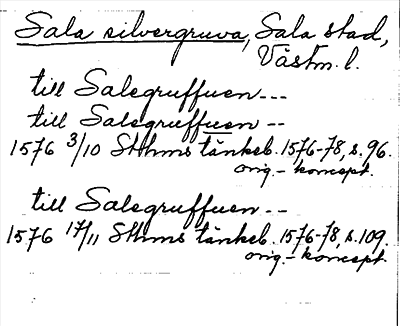 Sala silvergruva, Sala stad,
Västm. l.
till Salegruffuen---
till Salegruffuen--
1576 3/10 Sthms tänkeb. 1576-78, s. 96.
orig.- koncept.
till Salegruffuen--
1576 17/11 Sthms tänkeb. 1576-78, s. 109.
orig.- koncept.